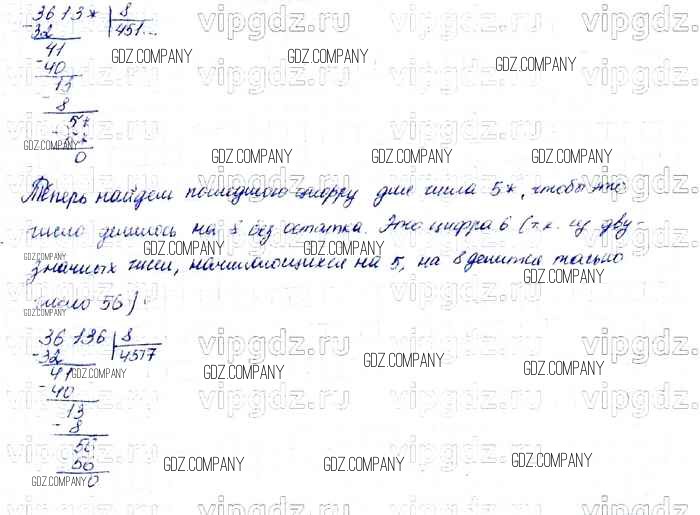 3613* | 8
- 32 | 451...
41
- 40
13
- 8
5*
0
Теперь найдем последнюю цифру для числа 5*, чтобы это
число делилось на 8 без остатка. Это цифра 6 (т.к. из дву-
значных чисел, начинающихся на 5, на 8 делится только
число 56).
36136 | 8
- 32 | 4517
41
- 40
13
- 8
56
- 56
0
vipgdz.ru
GDZ.COMPANY